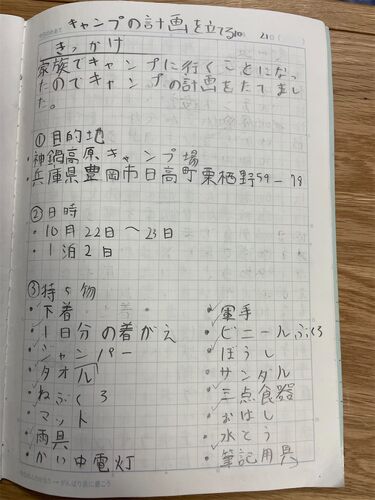 キャンプの計画を立てる
きっかけ
家族でキャンプに行くことになっ
たのでキャンプの計画をたてまし
た。
①目的地
・神鍋高原キャンプ場
・兵庫県豊岡市日高町栗栖野59-78
②日時
・10月22日～23日
・1泊2日
③持ち物
・下着
・1日分の着がえ
・ジャンパー
・タオル
・ねぶくろ
・マット
・雨具
・かい中電灯
・軍手
・ビニールぶくろ
・ぼうし
・サンダル
・三点食器
・おはし
・水とう
・筆記用具